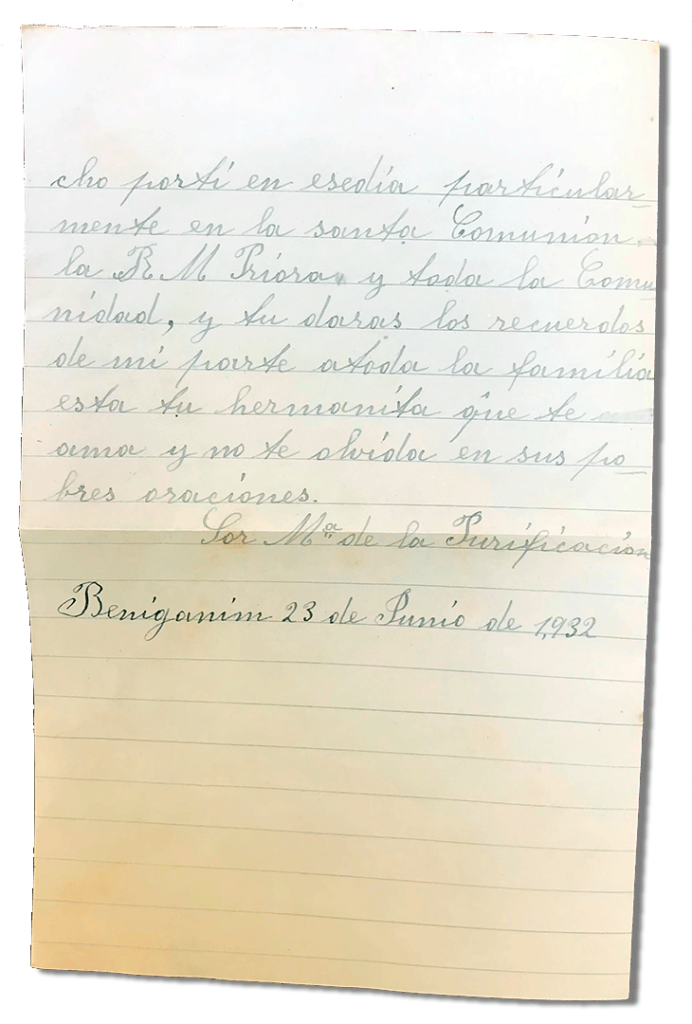 cho porti en esedia particular-
mente en la santa Comunión.
la R M Priora y toda la Comu
nidad, y tu daras los recuerdos
de mi parte atoda la familia
esta tu hermanita que te
ama y no te olvida en sus po-
bres oraciones.
Sor Mª de la Purificación
Beniganim 23 de Junio de 1,932